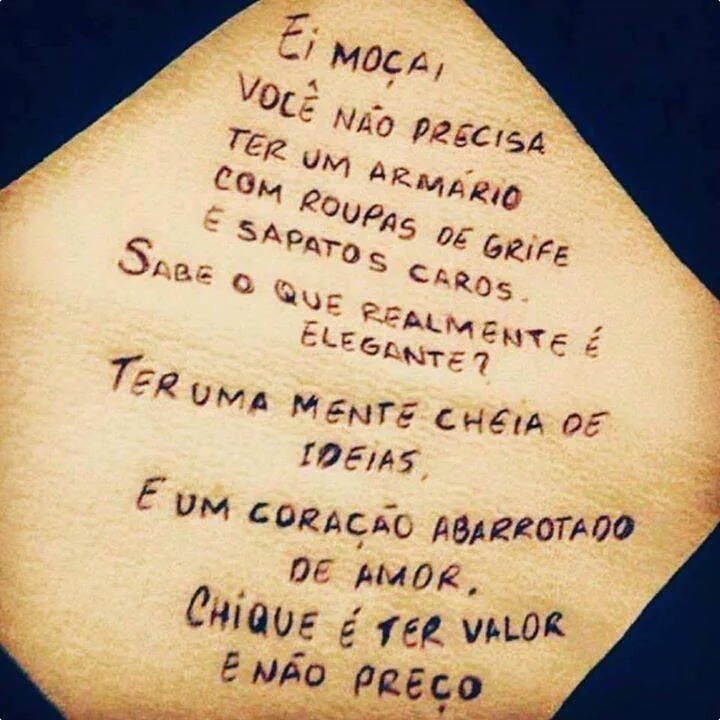 Ei MOÇA,
VOCÊ NÃO PRECISA
TER UM ARMÁRIO
COM ROUPAS DE GRIFE
E SAPATOS CAROS.
SABE O QUE REALMENTE É
ELEGANTE?
TER UMA MENTE CHEIA DE
IDEIAS,
E UM CORAÇÃO ABARROTADO
DE AMOR.
CHIQUE É TER VALOR
E NÃO PREÇO